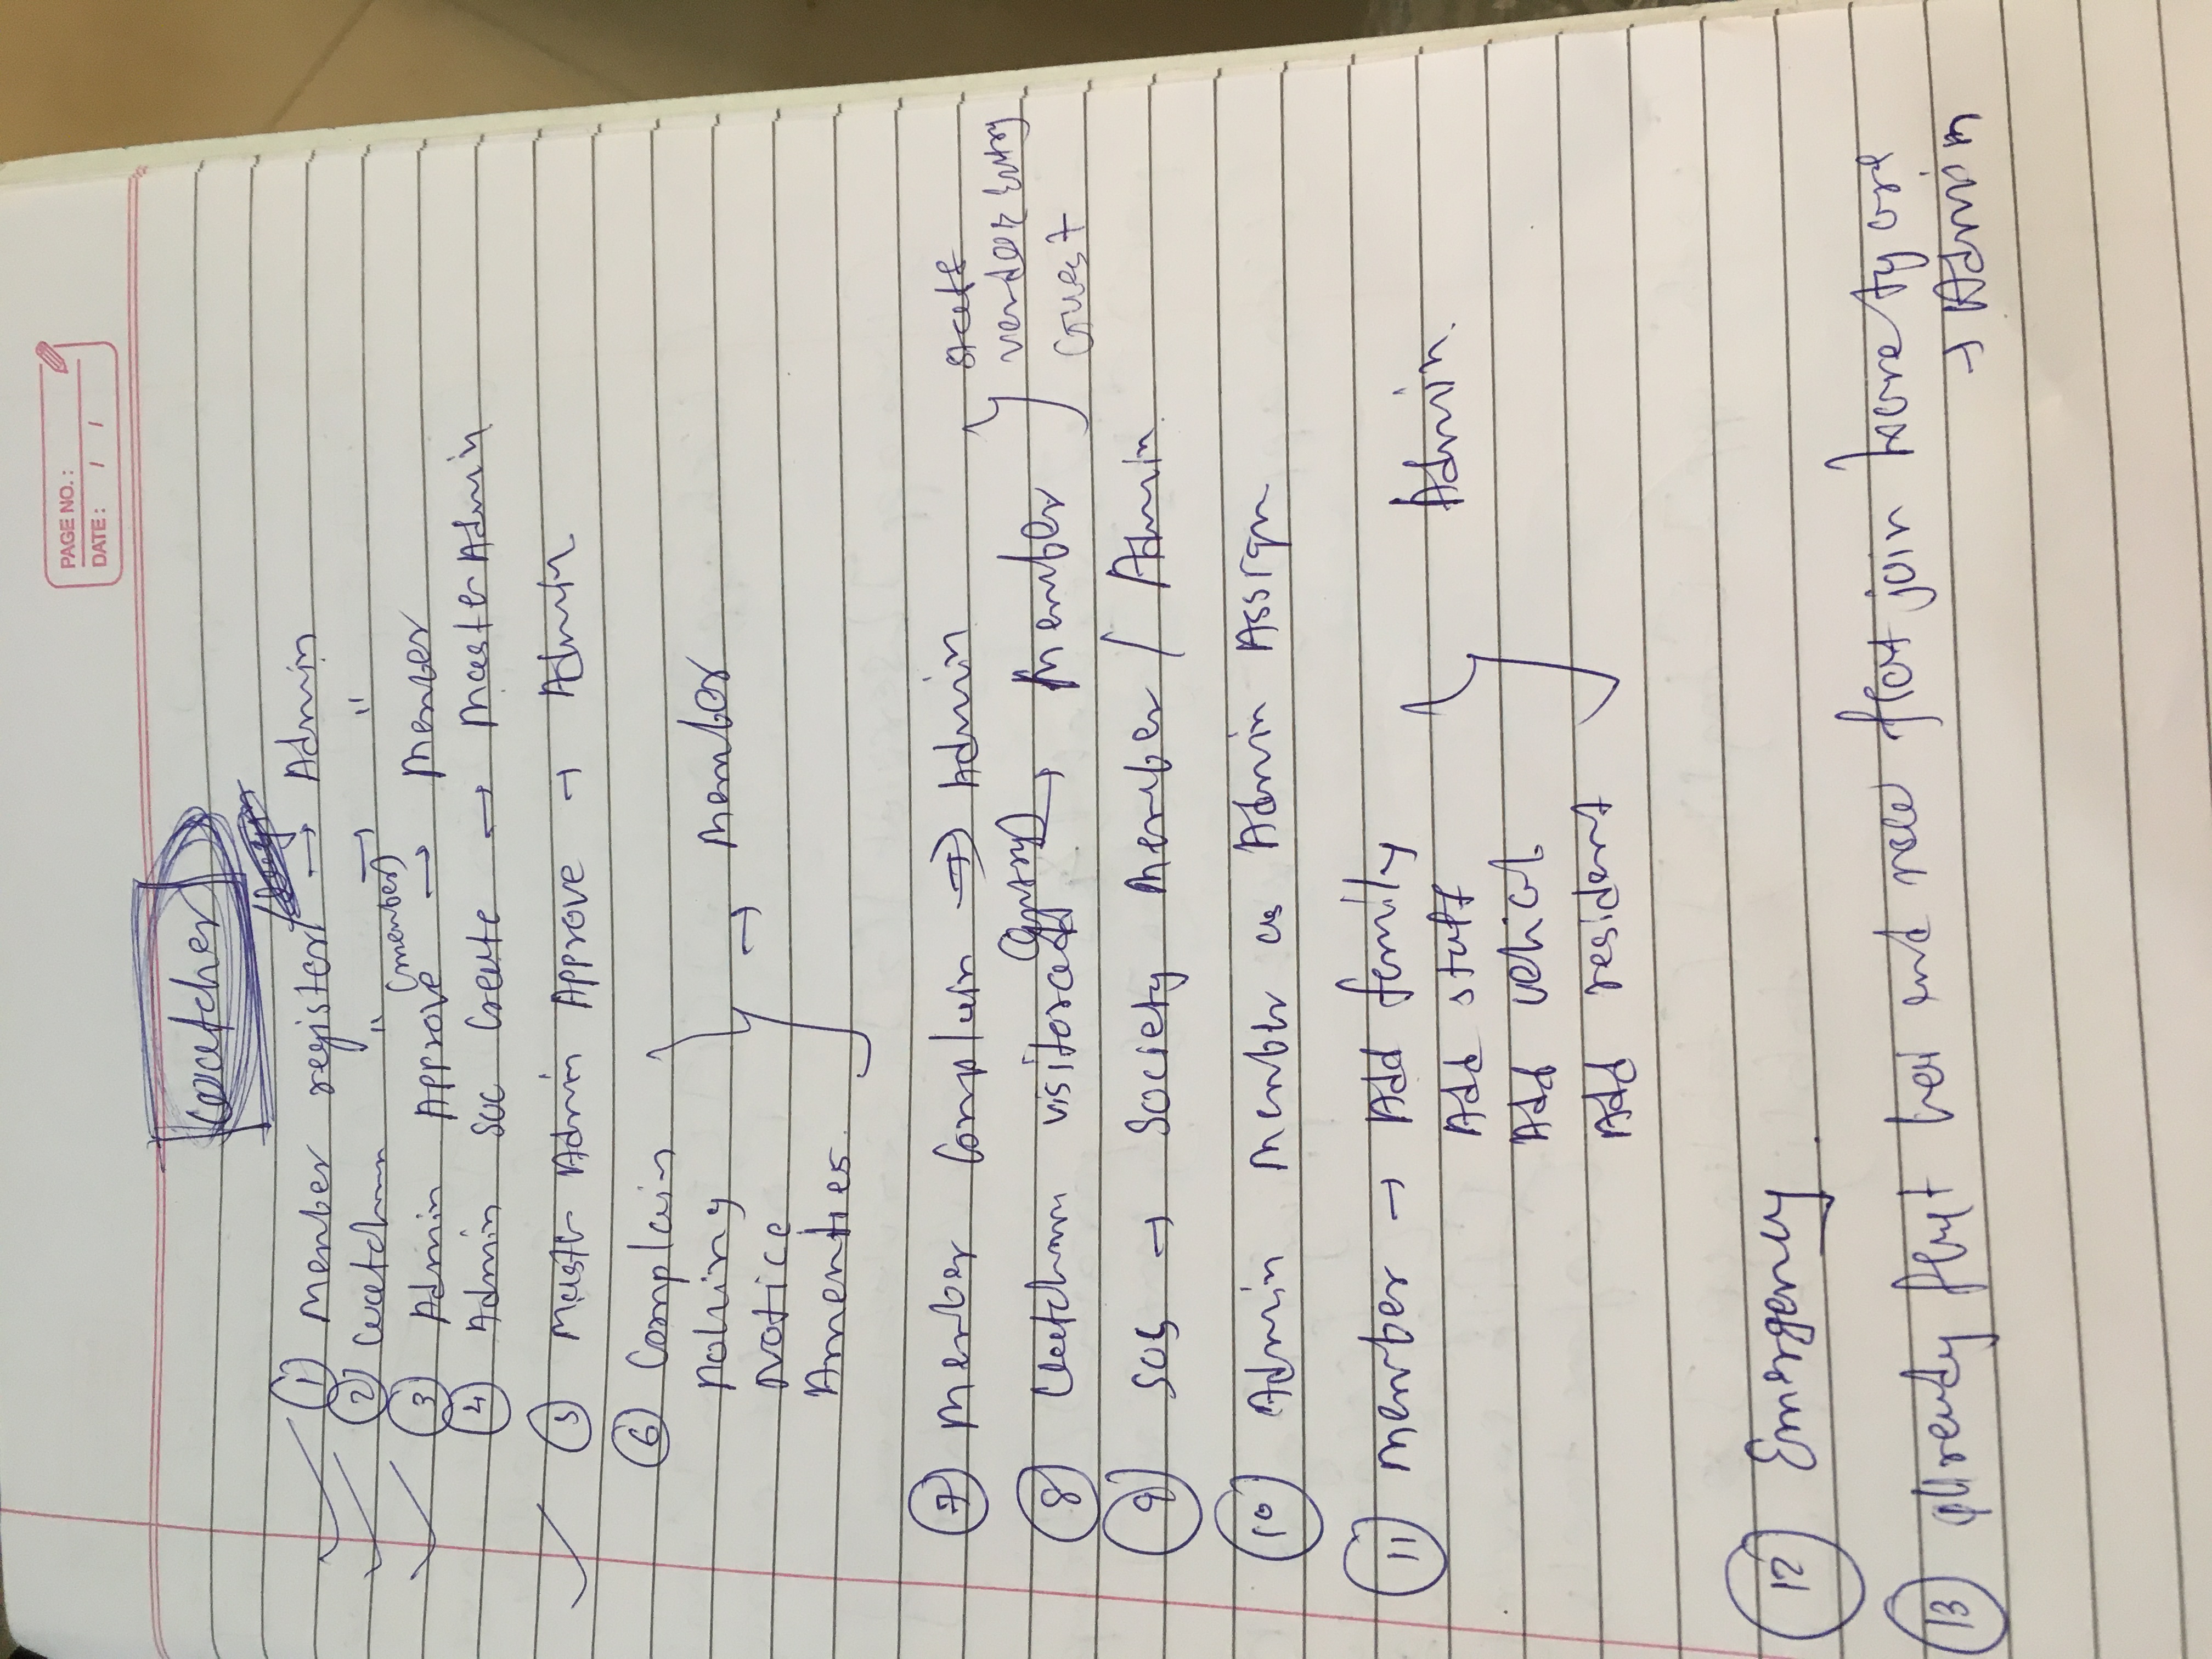 PAGE NO. :
DATE : / /
watcher
① Member register → Admin
② watchman " → "
③ Admin Approve (member) → Member
④ Admin soc Create → Master Admin
⑤ Master Admin Approve → Admin
⑥ Complain
Polling
Notice
Amenties.
→ Member
⑦ Member Complain → Admin
⑧ watchman visitor (entry) → Member
staff
vendor Entry
Guest
⑨ SOS → Society Member / Admin
⑩ Admin Member as Admin Assign
⑪ Member → Add family
Add staff
Add vehicle
Add resident
Admin.
⑫ Emergency.
⑬ already flat hai and new flat join
→ Admin